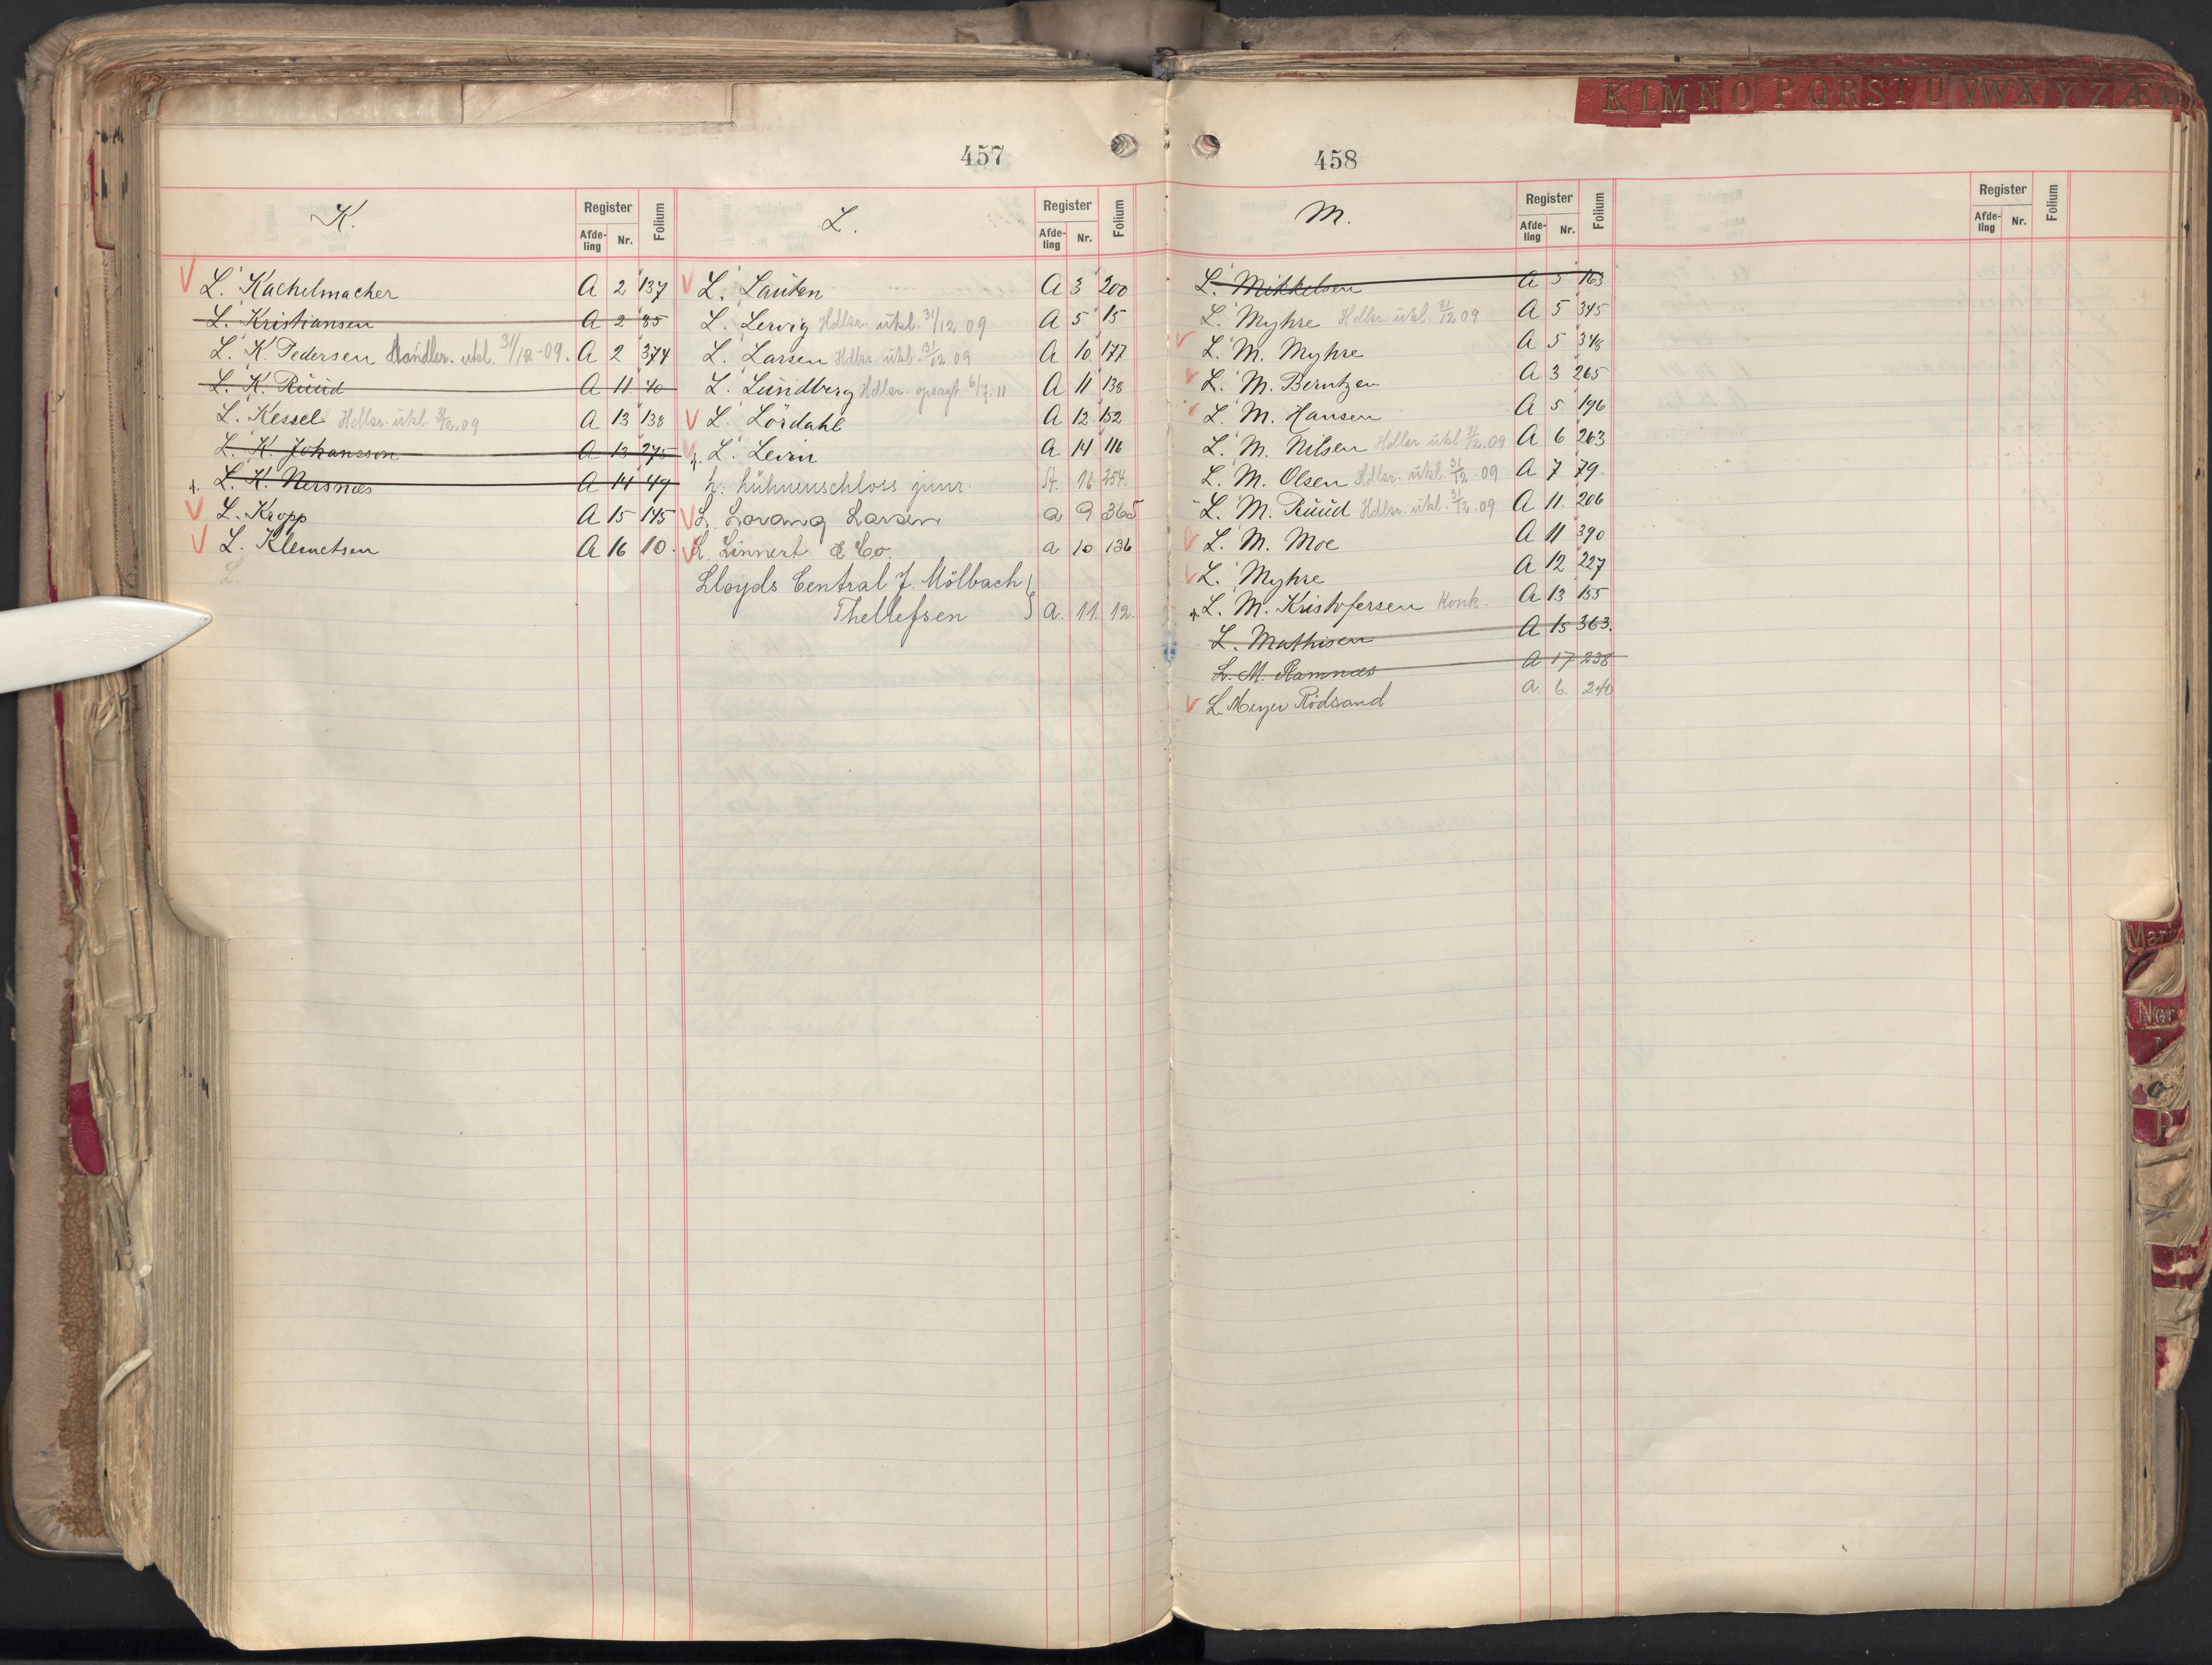 K L M N O P Q R S T U V W X Y Z Æ
457
K.
Register
Afde-
ling
Nr.
Folium
L. Kachelmacher A 2 137
L. Kristiansen A 2 85
L. K. Pedersen Handler. utsl. 31/12-09. A 2 374
L. K. Ruud A 11 40
L. Kessel Hdlsr. utsl. 31/12.09 A 13 138
L. K. Johansson A 13 275
L. K. Nersnæs A 14 49
L. Kropp A 15 145
L. Klemetsen A 16 10.
L.
L.
Register
Afde-
ling
Nr.
Folium
L. Lauten A 3 200
L. Lervig Hdlsr. utsl. 31/12 09 A 5 15
L. Larsen Hdlsr. utsl. 31/12.09 A 10 177
L. Lundberg Hdlsr. opsagt 6/7.11 A 11 138
L. Lördahl A 12 152
L. Levin A 14 116
L. Lühnenschloss junr. A. 16 254.
L. Lorang Larsen a 9 365
L. Linnert & Co. a 10 136
Lloyds Central J. Mölbach
Thellefsen a. 11. 12.
458
M.
Register
Afde-
ling
Nr.
Folium
L. Mikkelsen A 5 163
L. Myhre Hdlsr. utsl. 31/12 09 A 5 345
L. M. Myhre A 5 348
L. M. Berntzen A 3 265
L. M. Hansen A 5 196
L. M. Nilsen Hdlsr utsl 31/12.09 A 6 263
L. M. Olsen Hdlsr. utsl. 31/12 09 A 7 79.
L. M. Ruud Hdlsr. utsl. 31/12.09 A 11. 206
L. M. Moe A 11 390
L. Myhre A 12 227
L. M. Kristofersen Konk. A 13 155
L. Mathisen A 15 363.
L. M. Ramnæs A 17 238
L. Meyer Rödsand a. 6. 240
Register
Afde-
ling
Nr.
Folium
Mar
Nor
P